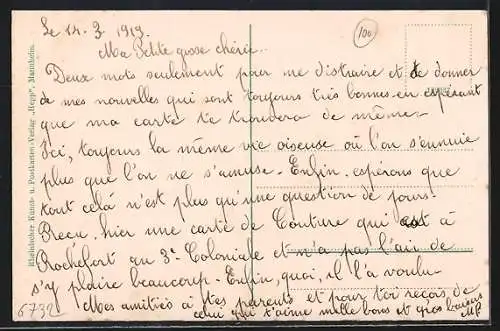 Le 14. 3. 1919.
100
Ma Petite grosse chérie..
Deux mots seulement pour me distraire et te donner
de mes nouvelles qui sont toujours très bonnes en espérant
que ma carte te trouvera de même.
Ici, toujours la même vie oiseuse où l'on s'ennuie
plus que l'on ne s'amuse. Enfin, espérons que
tout cela n'est plus qu'une question de jours!
Recu hier une carte de Couture qui est à
Rochefort au 3e Coloniale et n'a pas l'air de
s'y plaire beaucoup. Enfin, quoi, il l'a voulu
Mes amitiés à tes parents et pour toi reçois de
celui qui t'aime mille bons et gros baisers
6732
Rheinischer Kunst- u. Postkarten-Verlag „Hepp", Mannheim.